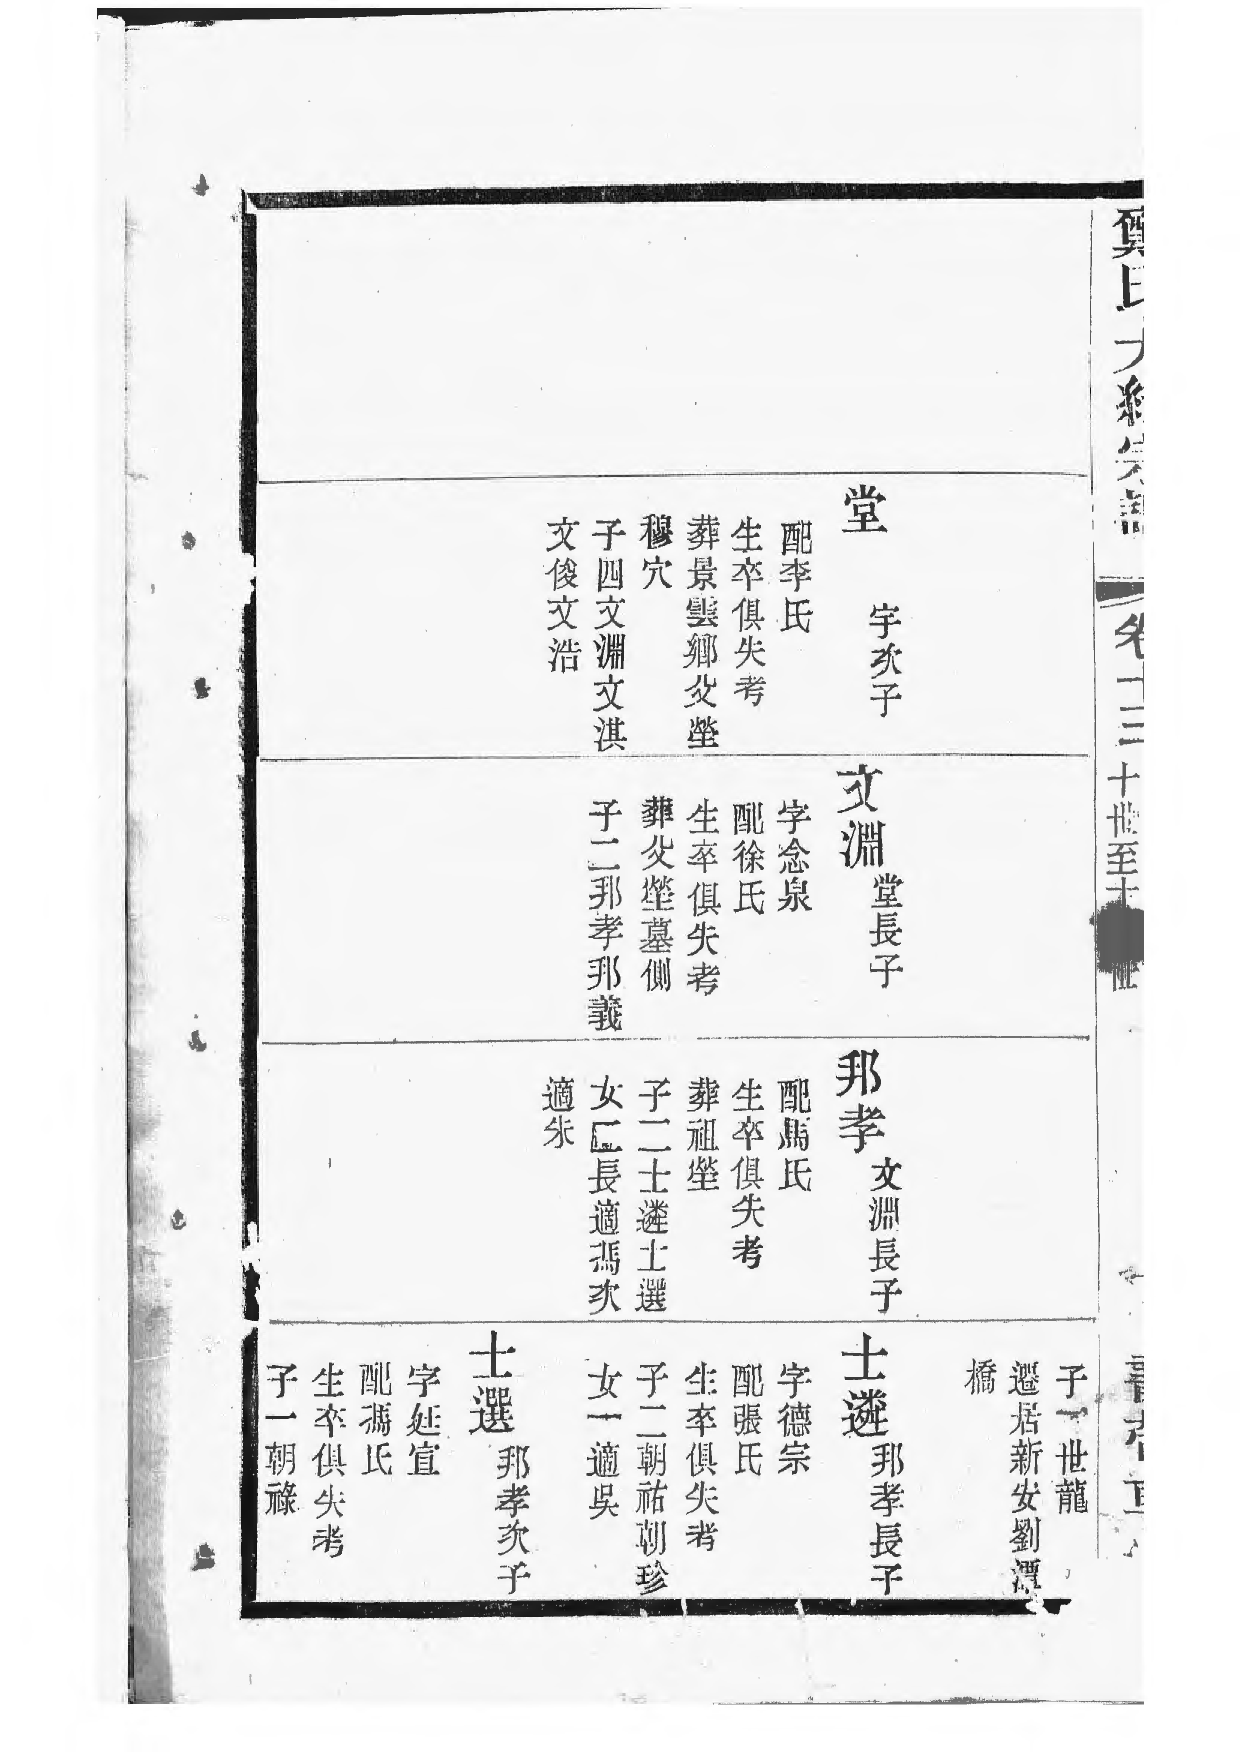 鄭氏大統宗譜
卷十三
十世至十
堂
字次子
配李氏
生卒俱失考
葬景雲鄉父塋
穆穴
子四文淵文淇
文俊文浩
文淵
堂長子
字念泉
配徐氏
生卒俱失考
葬父塋墓側
子二邦孝邦義
邦孝
文淵長子
配馬氏
生卒俱失考
葬祖塋
子二士遴士選
女二長適馮次
適朱
子一世龍
遷居新安劉潭
橋
士遴
邦孝長子
字德宗
配張氏
生卒俱失考
子二朝祐朝珍
女一適吳
士選
邦孝次子
字延宣
配馮氏
生卒俱失考
子一朝祿